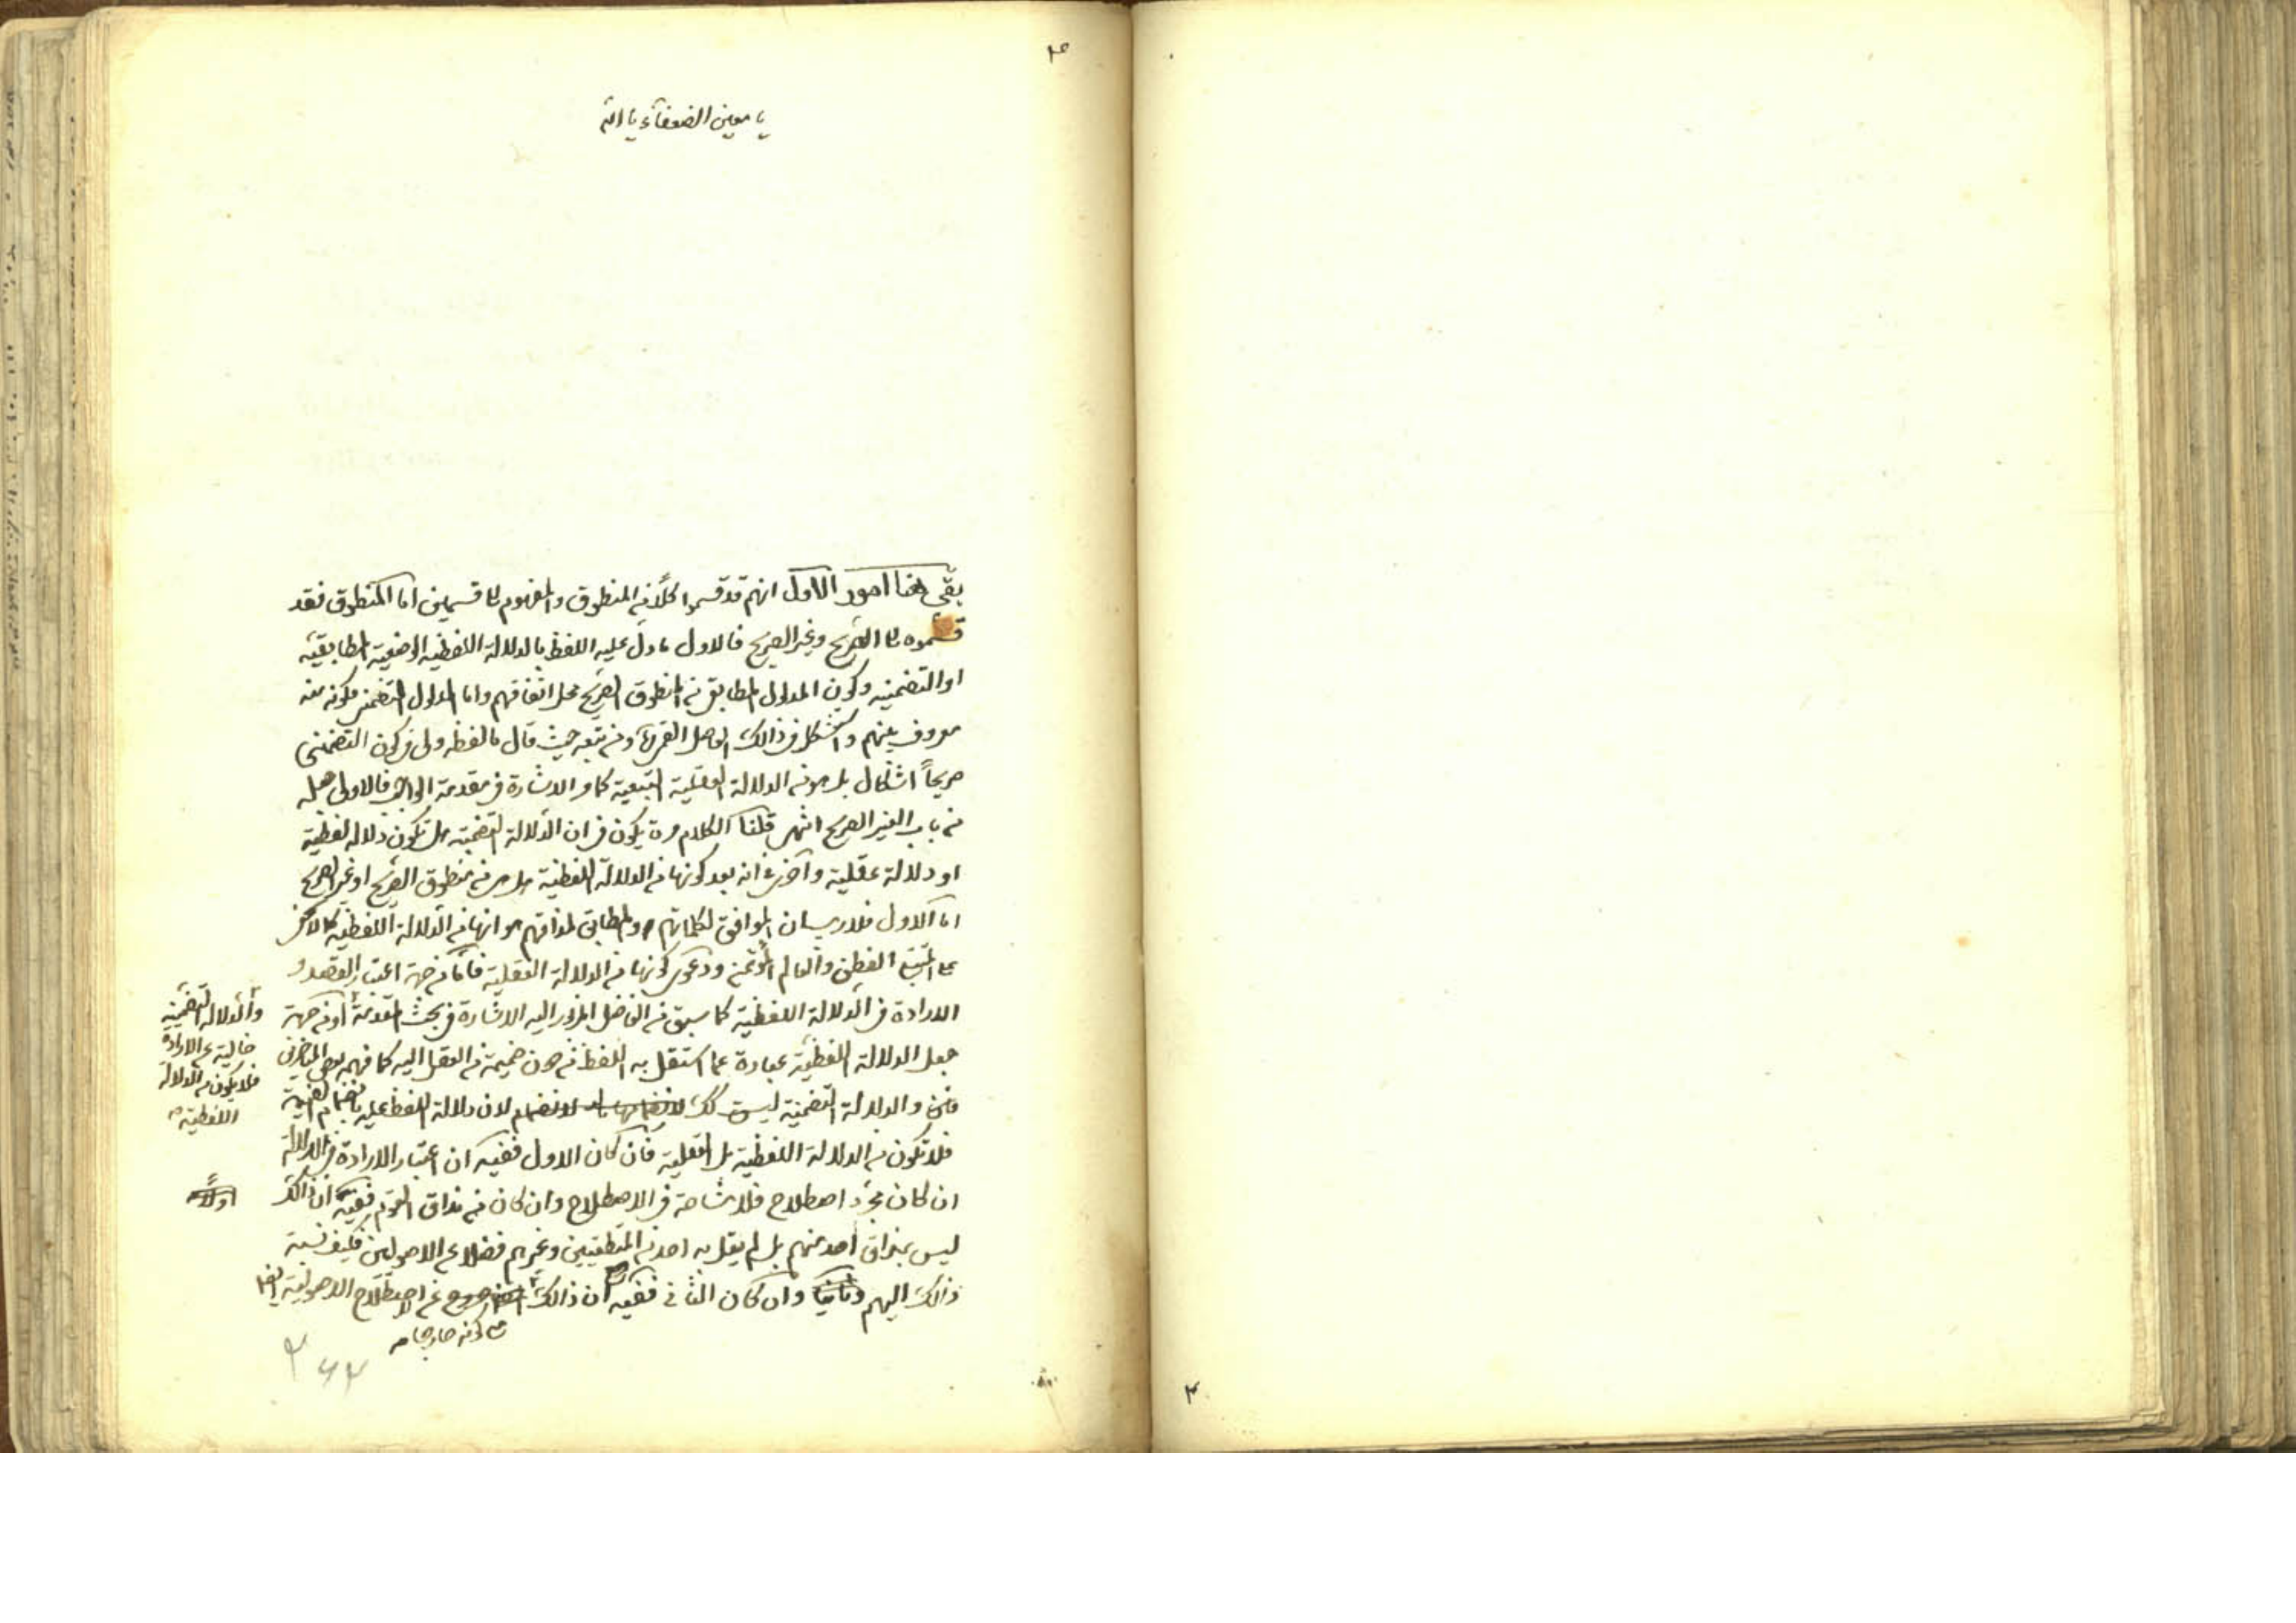 يا معين الضعفاء يا الله
بقى هنا امور الاول انهم قد قسموا كلا من المنطوق والمفهوم الى قسمين اما المنطوق فقد
قسموه الى الصريح وغير الصريح فالاول ما دل عليه اللفظ بالدلالة اللفظية الوضعية المطابقية
او التضمنية وكون المدلول المطابقى من المنطوق الصريح محل اتفاقهم واما المدلول التضمنى فكونه منه
معروف بينهم واستشكل فى ذالك الفاضل القمى ومن تبعه حيث قال ما لفظه ولى فى كون التضمنى
صريحاً اشكال بل هو من الدلالة العقلية التبعية كما مر الاشارة فى مقدمة الواجب فالاولى جعله
من باب الغير الصريح انتهى قلنا الكلام مرة يكون فى ان الدلالة التضمنية هل تكون دلالة لفظية
او دلالة عقلية واخرى فى انه بعد كونها من الدلالة اللفظية هل هى من منطوق الصريح او غير الصريح
اما الاول فلا ريب ان الموافق لكلماتهم والمطابق لمذاقهم هو انها من الدلالة اللفظية كما لا يخفى
على المتتبع الفطن والعالم المؤتمن ودعوى كونها من الدلالة العقلية فاما من جهة اعتبار القصد و
الارادة فى الدلالة اللفظية كما سبق من الفاضل المزبور اليه الاشارة فى بحث المقدمة او من جهة
والدلالة التضمنية
خالية عن الارادة
فلا يكون من الدلالة
اللفظية
جعل الدلالة اللفظية عبارة عما استقل به اللفظ من دون ضميمة من العقل اليه كما فهمه بعض المتاخرين
والدلالة التضمنية ليست كك لان دلالة اللفظ عليه بانضمام
فلا تكون من الدلالة اللفظية بل العقلية فان كان الاول ففيه ان اعتبار الارادة فى الدلالة
ان كان مجرد اصطلاح فلا مشاحة فى الاصطلاح وان كان من مذاق القوم ففيه ان ذالك
اولاً
ليس بمذاق احد منهم بل لم يقل به احد من المنطقيين وغيرهم فضلا عن الاصوليين فكيف نسبة
ذالك اليهم وثانيا وان كان الثانى ففيه ان ذالك خروج عن اصطلاح الاصولية ايضا